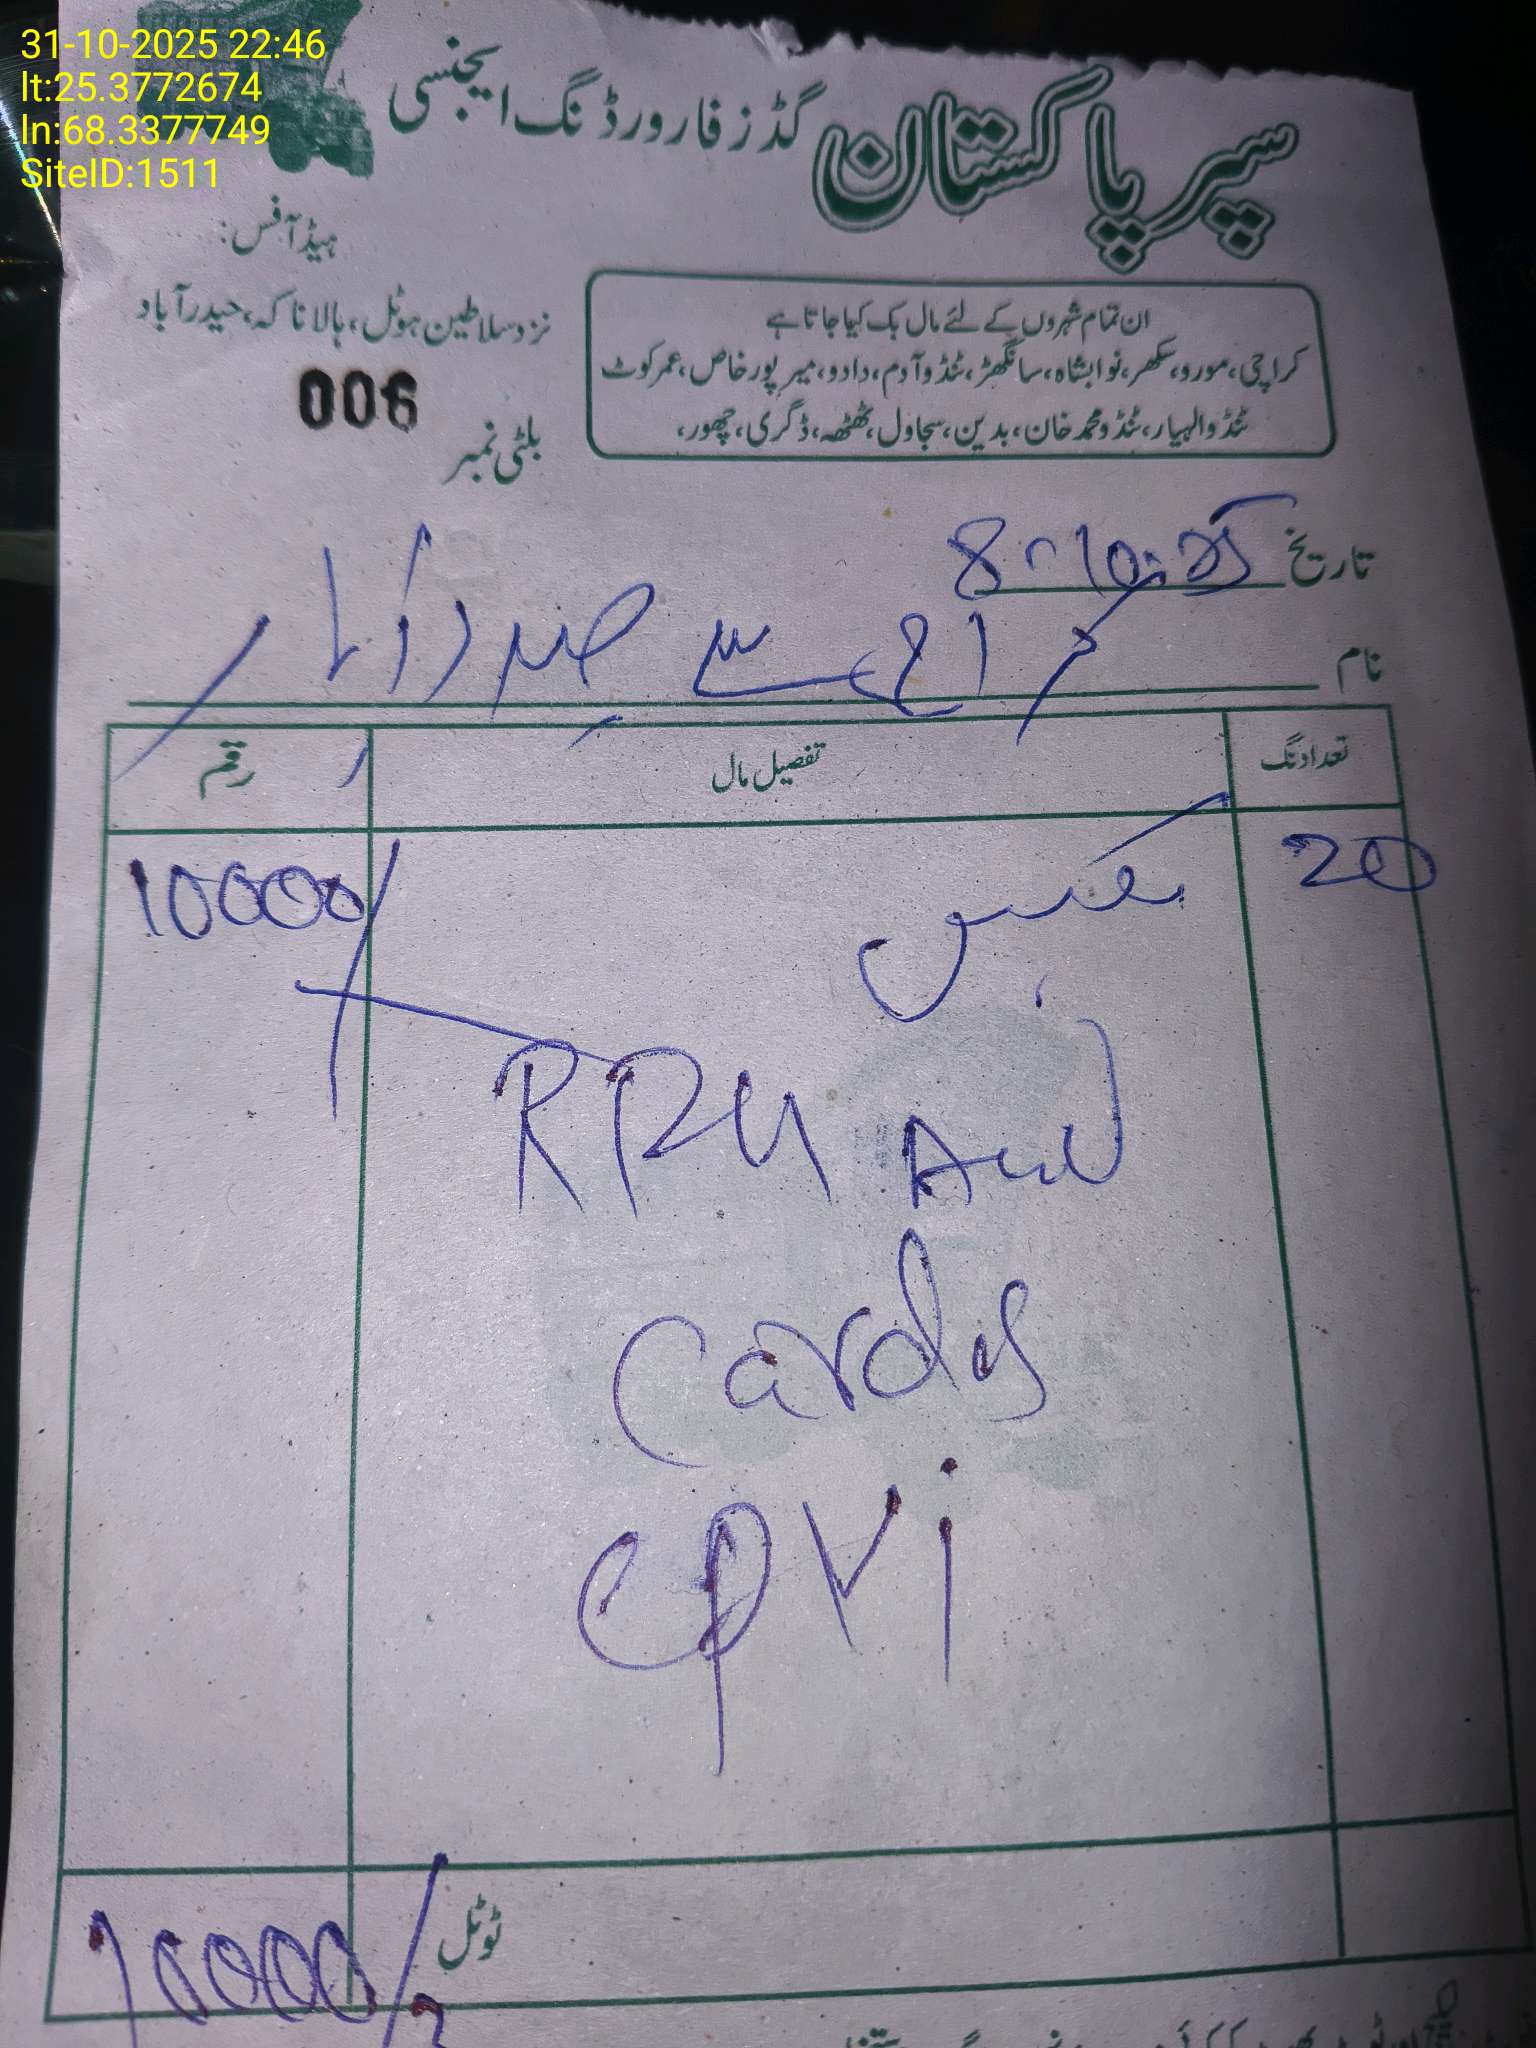 31-10-2025 22:46
lt:25.3772674
ln:68.3377749
SiteID:1511
سپر پاکستان گڈز فارورڈنگ ایجنسی
ہیڈ آفس:
نزد سلاطین ہوٹل، ہالا ناکہ، حیدرآباد
ان تمام شہروں کے لئے مال بک کیا جاتا ہے
کراچی، مورو، سکھر، نوابشاہ، سانگھڑ، ٹنڈو آدم، دادو، میرپور خاص، عمر کوٹ
ٹنڈو الہیار، ٹنڈو محمد خان، بدین، سجاول، ٹھٹھہ، ڈگری، چھور،
بلٹی نمبر 006
تاریخ 8-10-25
نام کراچی سے حیدرآباد
تعداد نگ تفصیل مال رقم
20 بکس 10000/
RPU And
Cards
CPVi
ٹوٹل 10000/